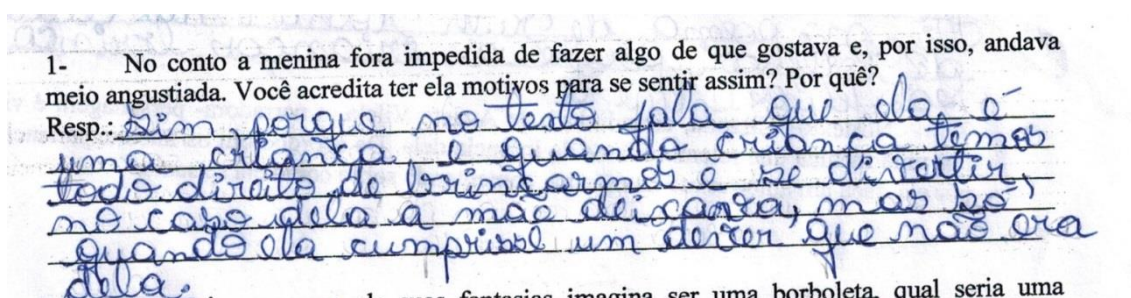 1- No conto a menina fora impedida de fazer algo de que gostava e, por isso, andava
meio angustiada. Você acredita ter ela motivos para se sentir assim? Por quê?
Resp.: Sim, porque no texto fala que ela é
uma criança, e quando criança temos
todo direito de brincarmos e se divertir,
no caso dela a mãe deixava, mas só,
quando ela cumprisse um dever que não era
dela.
fantasias imagina ser uma borboleta, qual seria uma